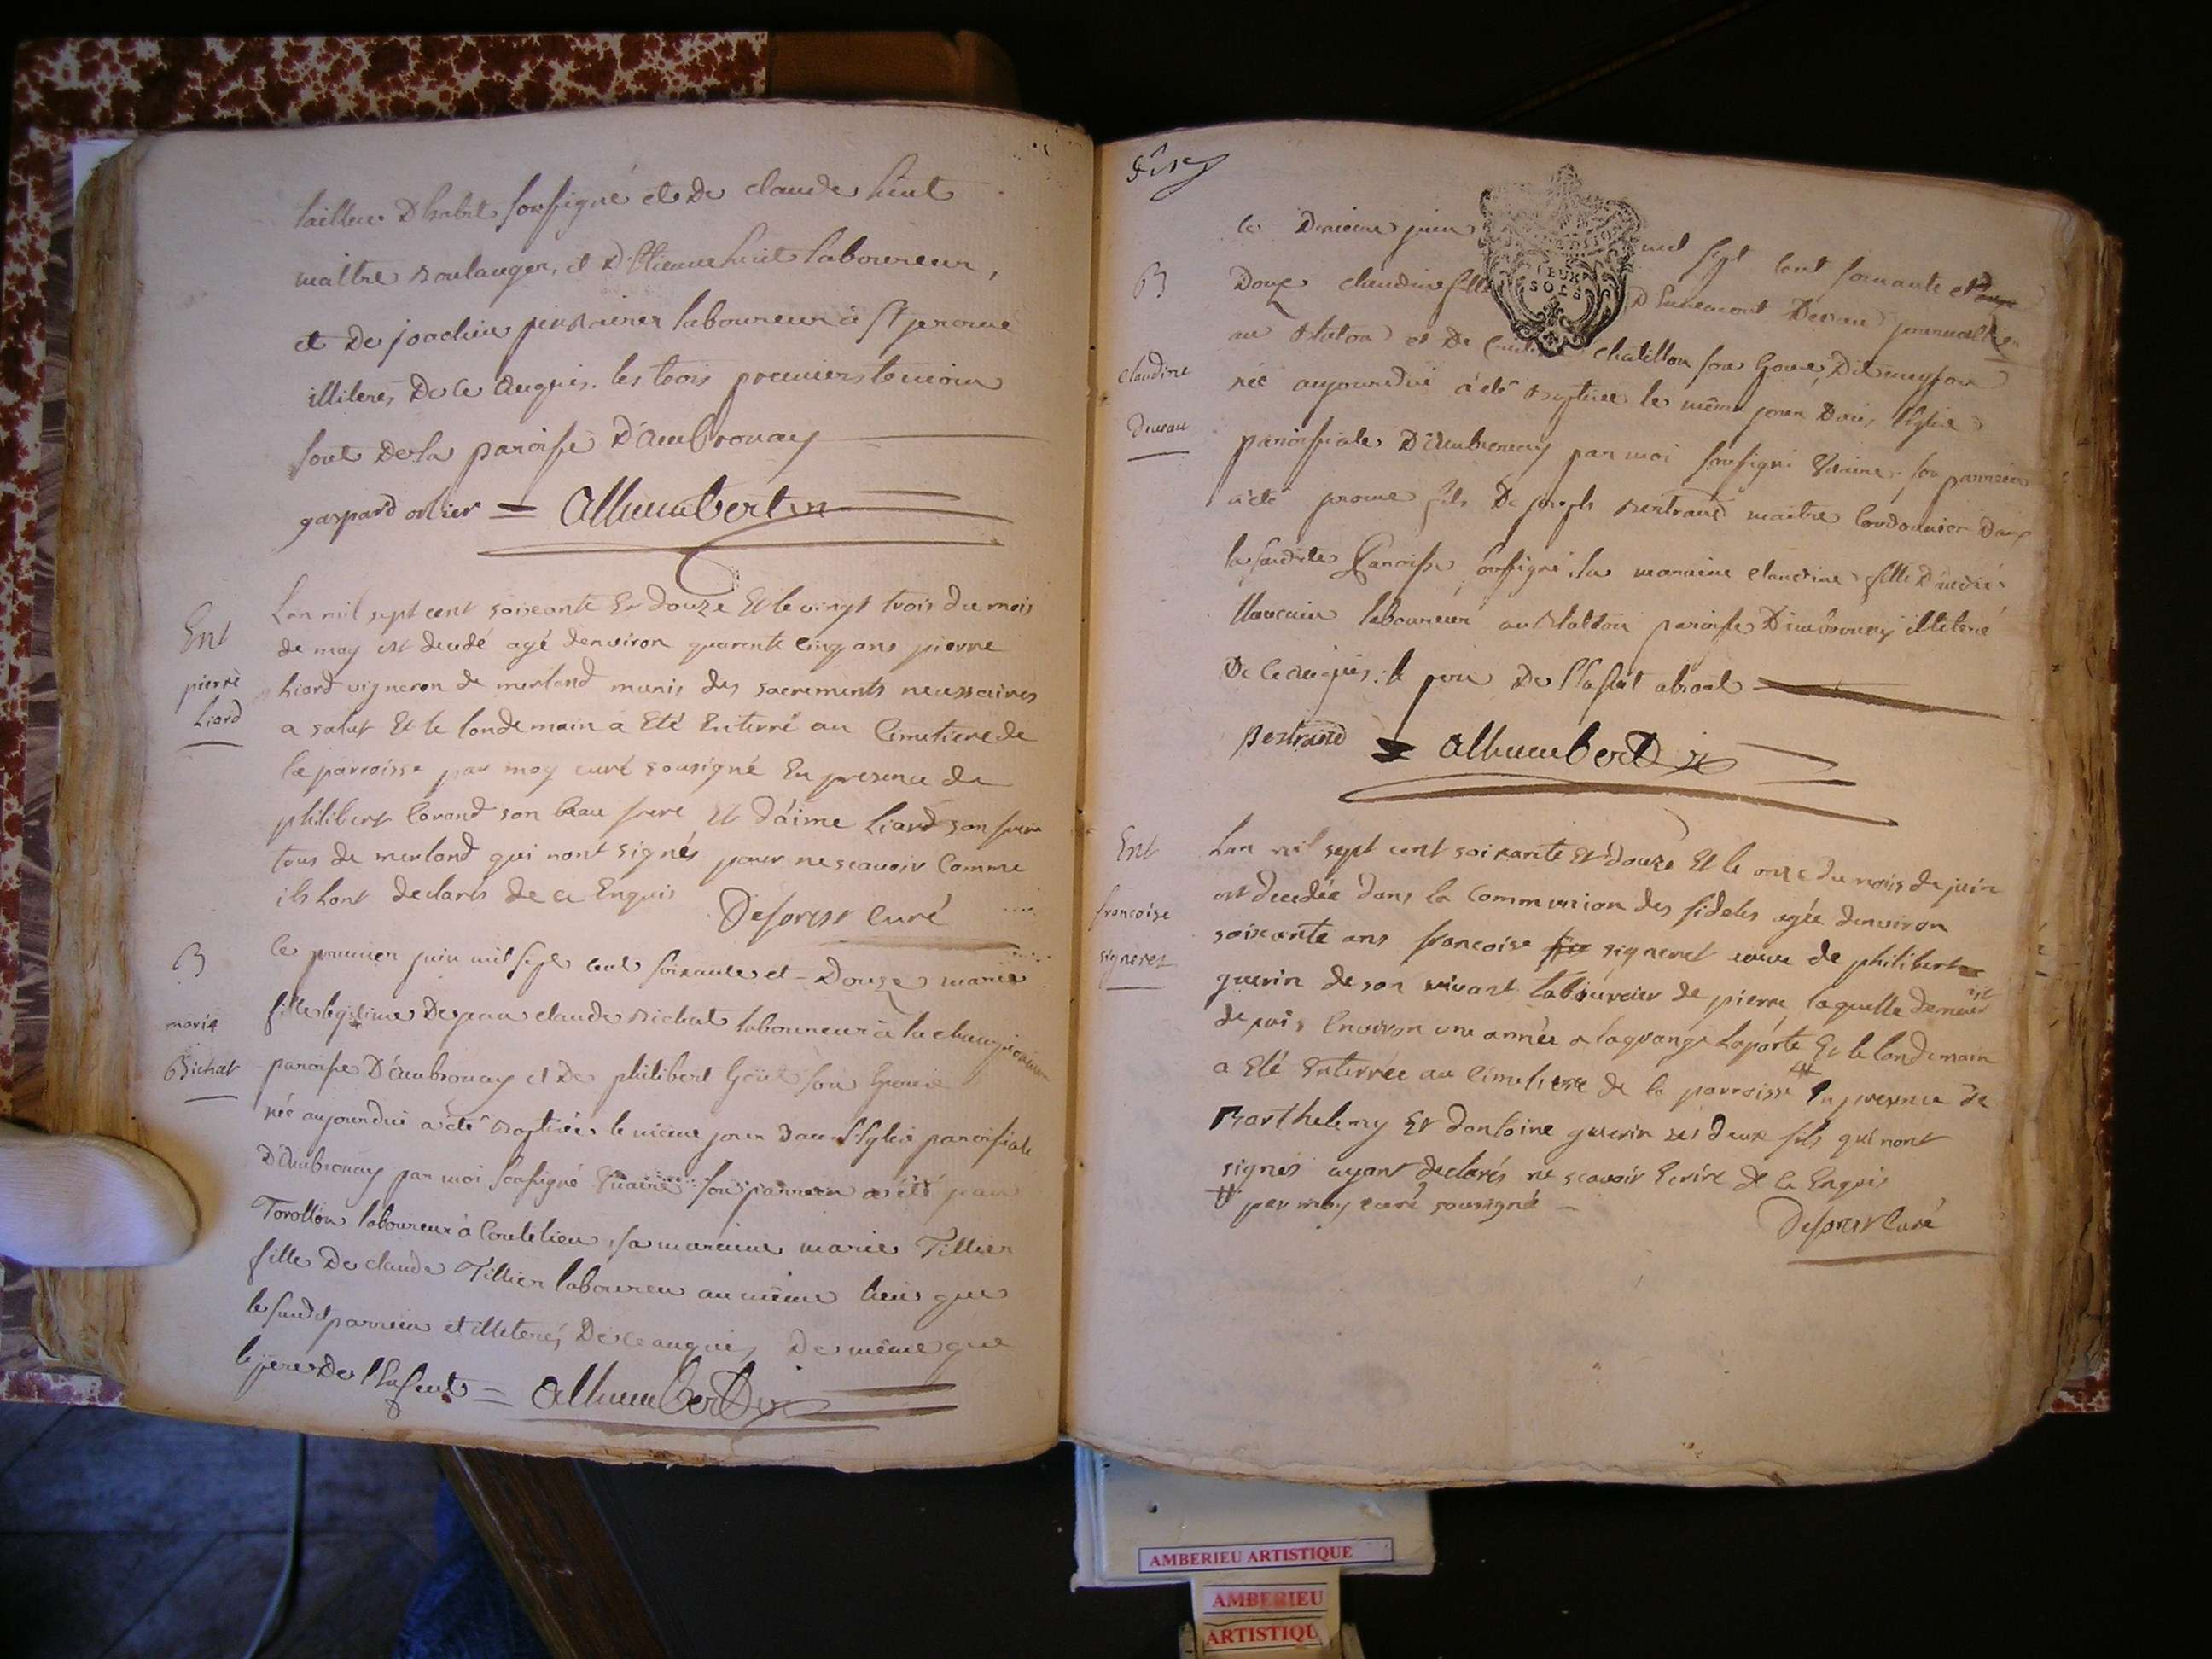 tailleur D'habit soussigné et De claude huit
maitre Boulanger, et D'Etienne huit laboureur,
et De joachim laboureur à St jerome
illiterés De ce enquis. les trois premiers temoins
sont De la paroisse D'ambronay
gaspard orlier = Alhumbert
Ent
pierre
Liard
Lan mil sept cent soixante Et douze Et le vingt trois du mois
de may est decedé agé denviron quarente cinq ans pierre
Liard vigneron de merland munis des sacrements necessaires
a salut Et le londemain a Eté Enterré au Cimetiere de
la parroisse par moy curé sousigné En presence de
philibert Corand son beau frere Et d'aime Liard son frere
tous de merland qui nont signés pour ne scavoir Comme
ils hont declarés de ce Enquis Deforest Curé
B
marie
Bichat
Ce premier juin mil sept cent soixante et = Douze marie
fille legitime De jean claude Bichat laboureur à la
paroisse D'ambronay et De philibert son Epouse
née aujourdui a été Baptisée le même jour Dans l'Eglise paroissiale
D'Ambronay par moi soussigné vicaire son parrein a été jean
Torollion laboureur à Coutelieu, sa maraine marie Tillier
fille De claude Tillier laboureur au même lieu que
le susdit parrein et illiterés De ce enquis De même que
le pere De l'Enfant = Alhumbert
B
claudine
Deveau
Le Dernier juin mil sept cent soixante et
Douze claudine fille D'Ennemont Deveau journallier
au Blaton et De chatillon son Epouse,
née aujourdui a été Baptisée le même jour Dans l'Eglise
paroissiale D'Ambronay par moi soussigné vicaire. son parrein
a été jerome fils De joseph Bertrand maitre Cordonnier Dans
la susdite Paroisse soussigné. sa maraine claudine fille D'andré
laboureur au Blatton paroisse D'ambronay illiteré
De ce enquis. le pere De l'Enfant absent
Bertrand = Alhumbert
Ent
francoise
signeret
Lan mil sept cent soixante Et douze Et le onze du mois de juin
est decedée dans la Communion des fideles agée denviron
soixante ans francoise signeret veuve de philibert
guerin de son vivant laboureur de pierre laquelle demeuroit
depuis Environ une année a lagrange Laporte Et le londemain
a Eté Enterrée au Cimetiere de la parroisse # En presence de
Barthelemy Et dantoine guerin ses deux fils qui nont
signés ayant declarés ne scavoir Ecrire de ce Enquis
# par moy curé sousigné Deforest Curé
AMBERIEU ARTISTIQUE
AMBERIEU
ARTISTIQU